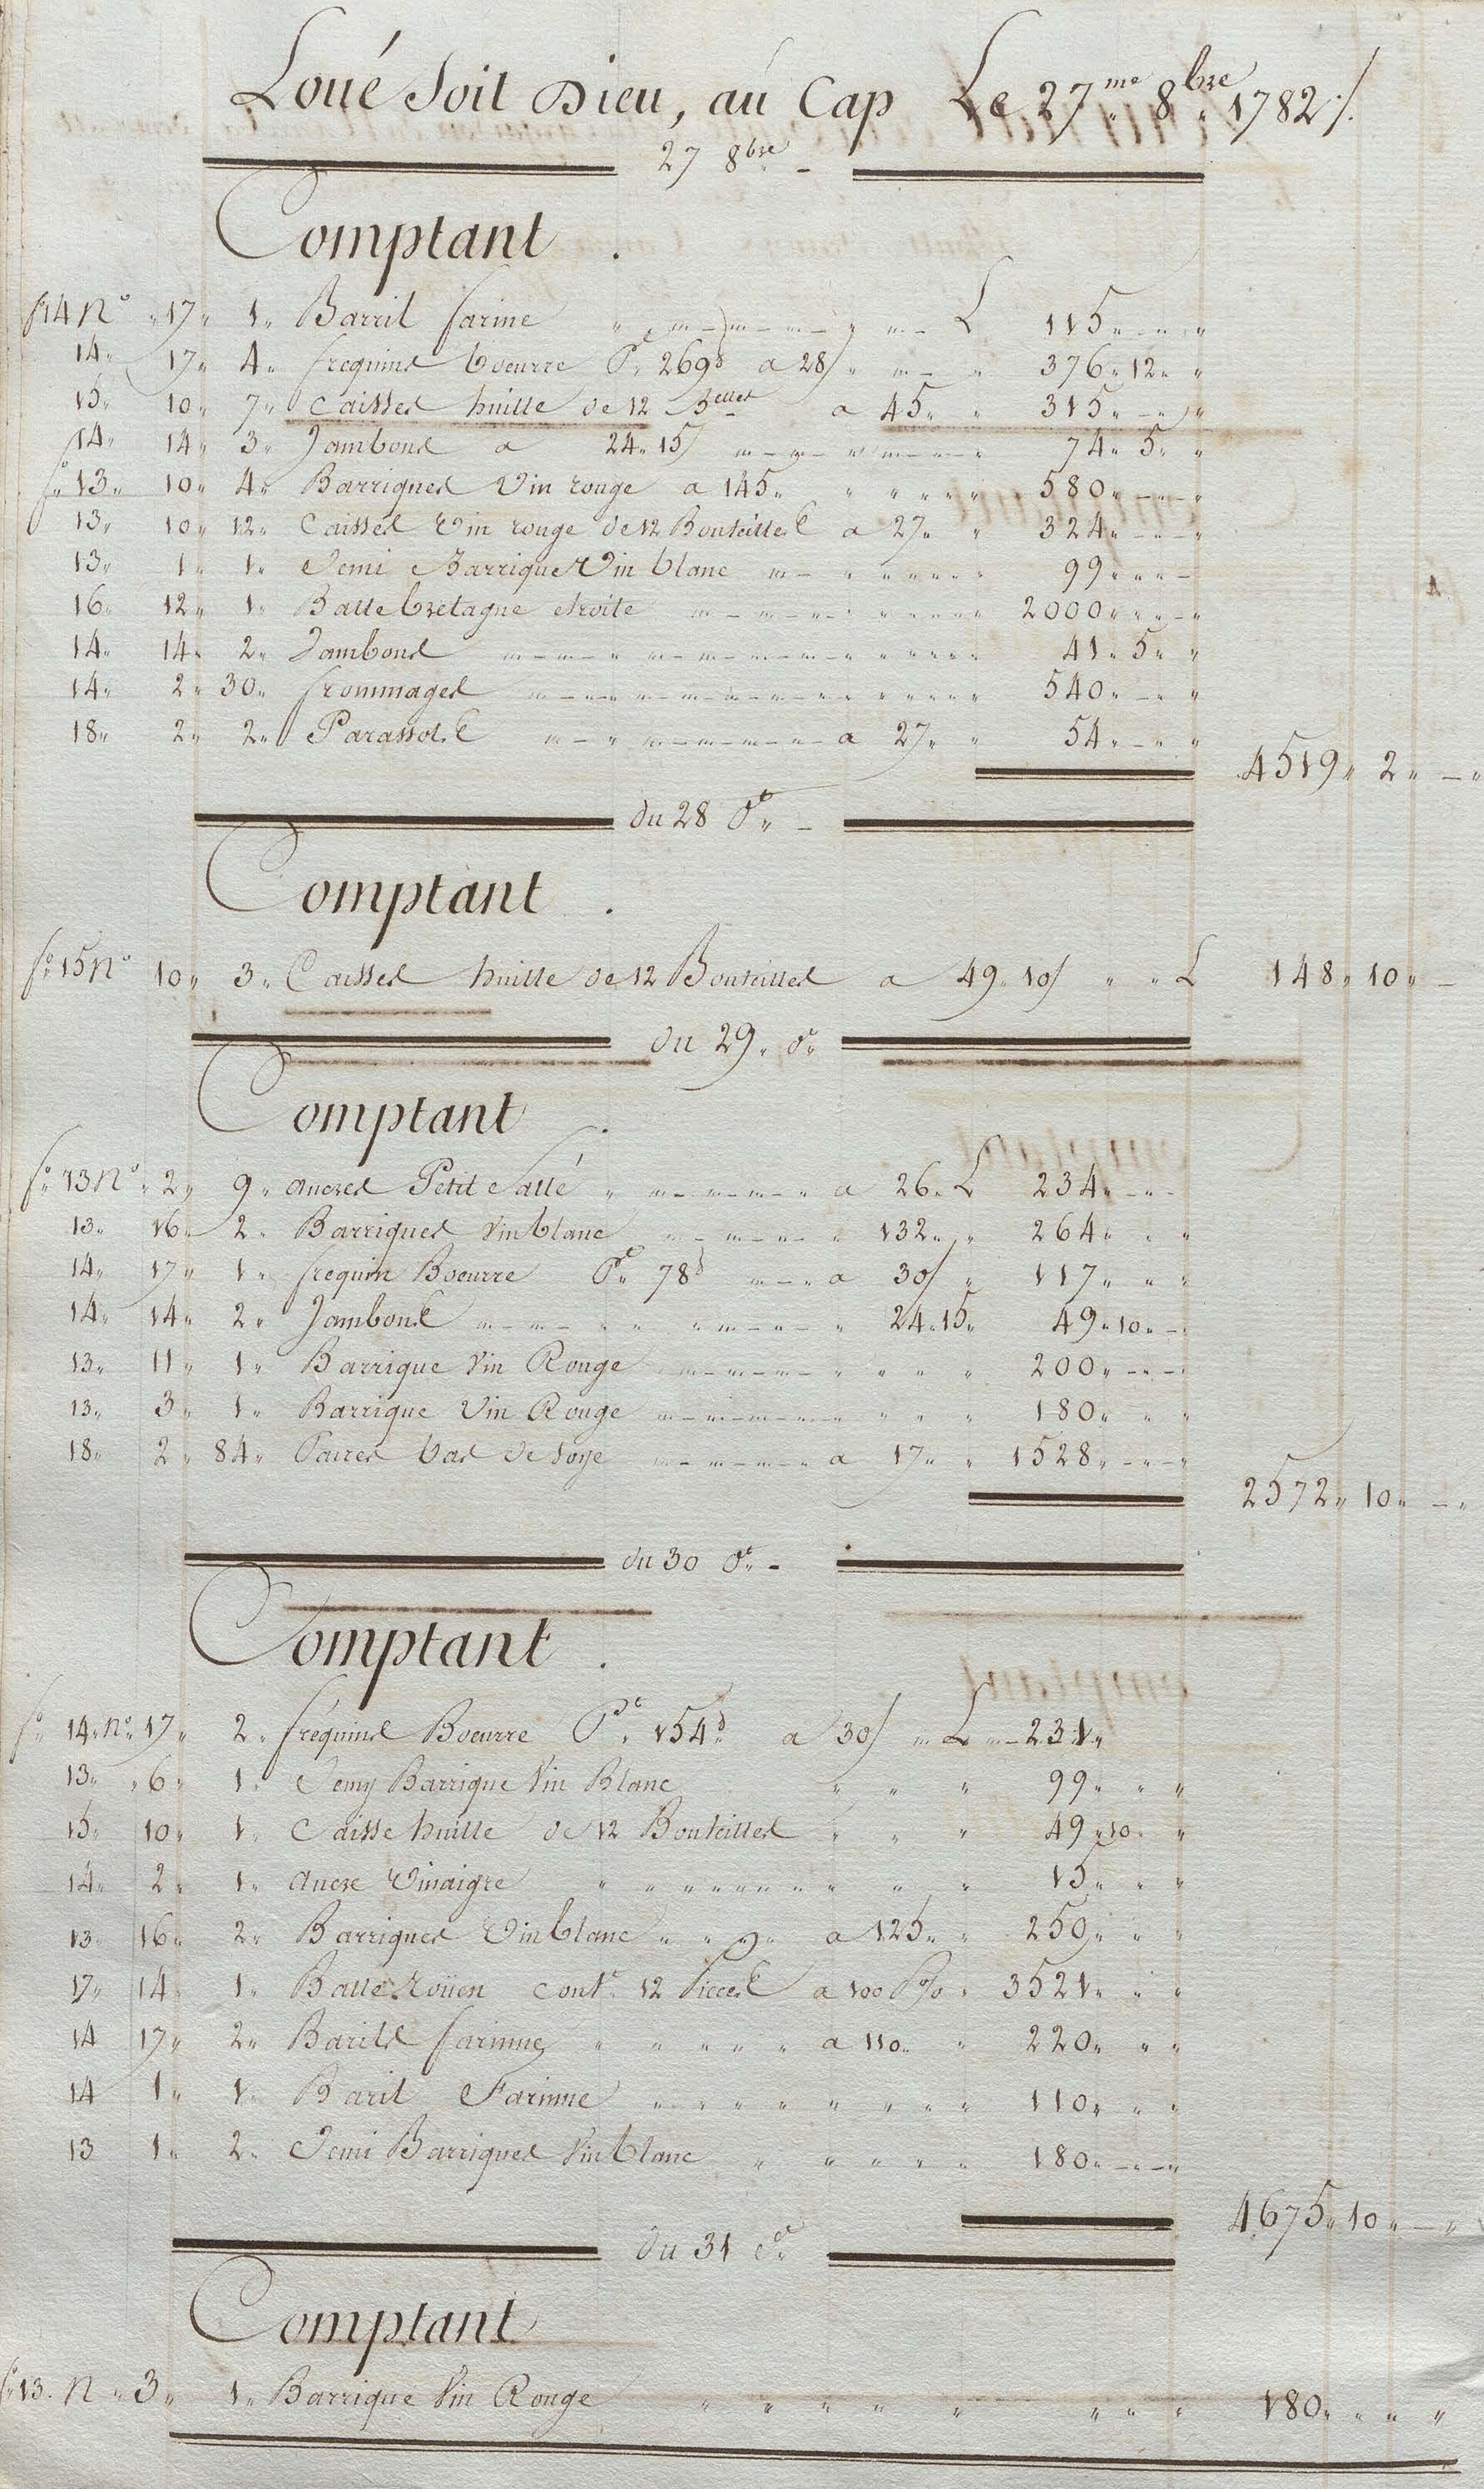 Loué Soit Dieu, au Cap Le 27me 8bre 1782 /.
27 8bre
Comptant
fo 14 No 17 1 Barril farine L 115
14 17 4 frequins boeurre Pt 269 d a 28/ 376 12
15 10 7 Caisses huille de 12 Belles a 45 315
14 14 3 Jambons a 24 15/ 74 5
fo 13 10 4 Barriques Vin rouge a 145 580
13 10 12 Caisses Vin rouge de 12 Bouteilles a 27 324
13 1 1 Demi Barrique Vin blanc 99
16 12 1 Balle bretagne etroite 2000
14 14 2 Jambons 41 5
14 2 30 frommages 540
18 2 2 Parassols a 27 54
4519 2
du 28 do
Comptant
fo 15 No 10 3 Caisses huille de 12 Bouteilles a 49 10/ L 148 10
du 29 do
Comptant
fo 13 No 2 9 ancres Petit Sallé a 26 L 234
13 16 2 Barriques Vin blanc 132 264
14 17 1 frequin Boeurre Pt 78 d a 30/ 117
14 14 2 Jambons 24 15 49 10
13 11 1 Barrique Vin Rouge 200
13 3 1 Barrique Vin Rouge 180
18 2 84 Paires bas de soye a 17 1528
2572 10
du 30 do
Comptant
fo 14 No 17 2 fréquins Boeurre Pt 154 d a 30/ L 231
13 6 1 Demy Barrique Vin Blanc 99
15 10 1 Caisse huille de 12 Bouteilles 49 10
14 2 1 ancre Vinaigre 15
13 16 2 Barriques Vin blanc a 125 250
17 14 1 Balle Roüen cont 12 Pieces a 100 P% 3521
14 17 2 Barils farinne a 110 220
14 1 1 Baril Farinne 110
13 1 2 Demi Barriques Vin blanc 180
4675 10
du 31 do
Comptant
fo 13 N 3 1 Barrique Vin Rouge 180